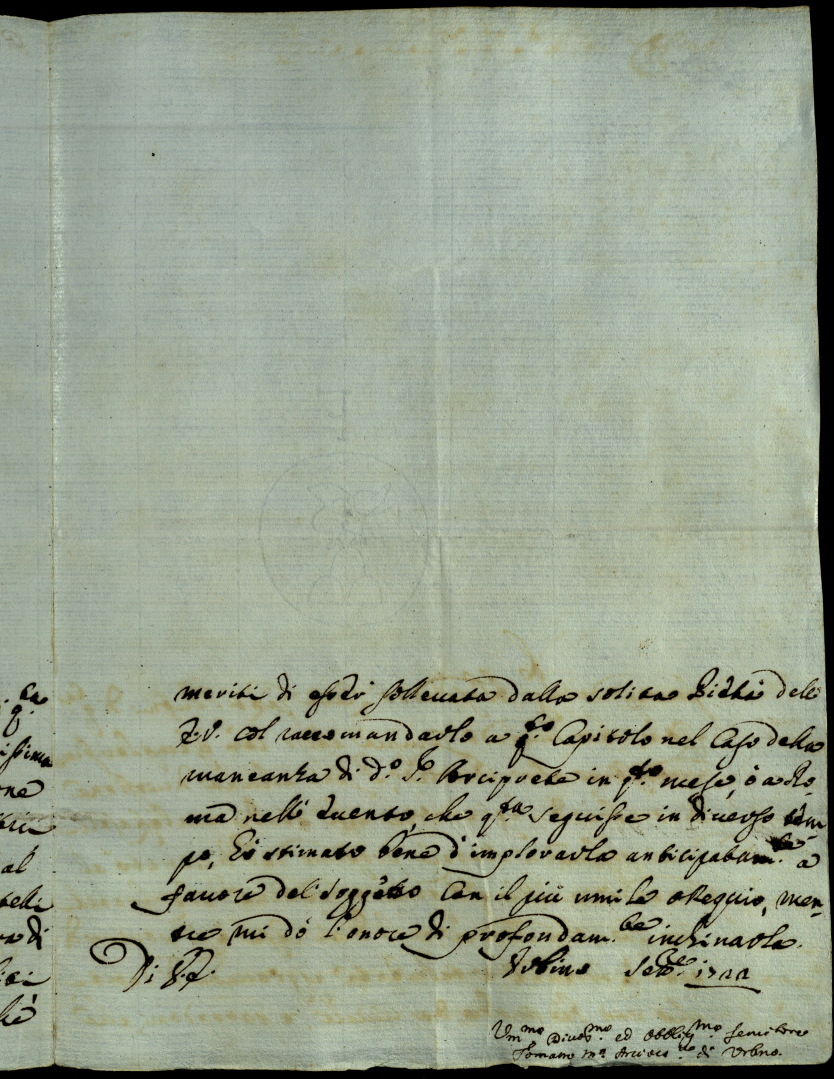 meriti di esser sollevata dalla solita Pietà dell'
E.V. col raccomandarlo a q.sto Capitolo nel Caso della
mancanza di d.o S.r Arciprete in q.sto mese, ò a Ro-
ma nell'Evento, che q.sta seguisse in diverso tem-
po, hò stimato bene d'implorarla anticipatam.te a
favore del sogg.etto Con il più umile ossequio, men-
tre mi dò l'onore di profondam.te inchinarla.
Di V.E. Urbino Set.bre 1722
Um.mo Divot.mo ed Obblig.mo Servitore
Tomaso M.a Arcives.vo di Urbino.
ca
q.
issima
one
al
di
hè